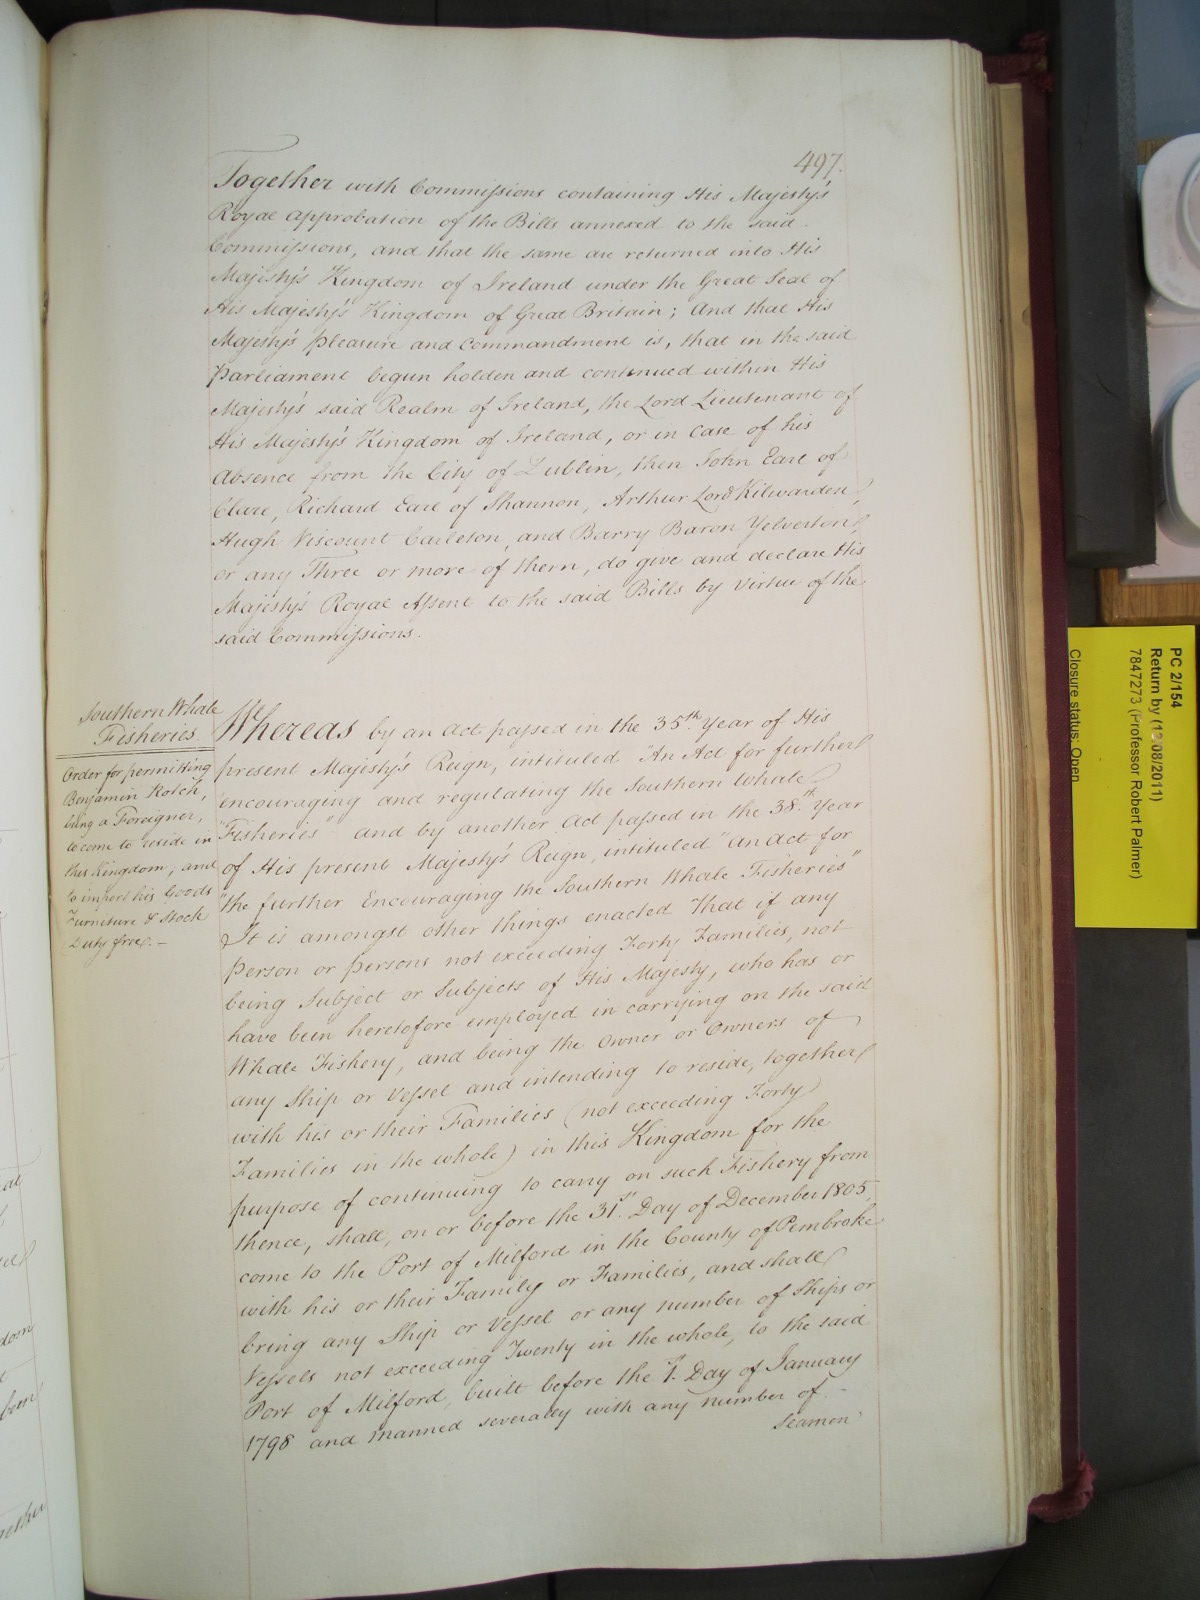 497.
Together with Commissions containing His Majesty's
Royal approbation of the Bills annexed to the said
Commissions, and that the same are returned into His
Majesty's Kingdom of Ireland under the Great Seal of
His Majesty's Kingdom of Great Britain; And that His
Majesty's pleasure and Commandment is, that in the said
Parliament begun holden and continued within His
Majesty's said Realm of Ireland, the Lord Lieutenant of
His Majesty's Kingdom of Ireland, or in Case of his
Absence from the City of Dublin, then John Earl of
Clare, Richard Earl of Shannon, Arthur Lord Kilwarden,
Hugh Viscount Carleton, and Barry Baron Yelverton,
or any Three or more of them, do give and declare His
Majesty's Royal Assent to the said Bills by Virtue of the
said Commissions.
Southern Whale
Fisheries.
Order for permitting
Benjamin Rotch,
being a Foreigner,
to come to reside in
this Kingdom, and
to import his Goods
Furniture & Stock
Duty free. –
Whereas by an Act passed in the 35th Year of His
present Majesty's Reign, intituled "An Act for further
encouraging and regulating the Southern Whale
"Fisheries" and by another Act passed in the 38th Year
of His present Majesty's Reign, intituled "An Act for
"the further Encouraging the Southern Whale Fisheries"
It is amongst other things enacted That if any
person or persons not exceeding Forty Families, not
being Subject or Subjects of His Majesty, who has or
have been heretofore employed in carrying on the said
Whale Fishery, and being the Owner or Owners of
any Ship or Vessel and intending to reside, together
with his or their Families (not exceeding Forty
Families in the whole) in this Kingdom for the
purpose of continuing to carry on such Fishery from
thence, shall, on or before the 31st Day of December 1805,
come to the Port of Milford in the County of Pembroke
with his or their Family or Families, and shall
bring any Ship or Vessel or any number of Ships or
Vessels not exceeding Twenty in the whole, to the said
Port of Milford, built before the 1st Day of January
1798 and manned severally with any number of –
Seamen
PC 2/154
Return by (1 08/2011)
7847273 (Professor Robert Palmer)
Closure status: Open